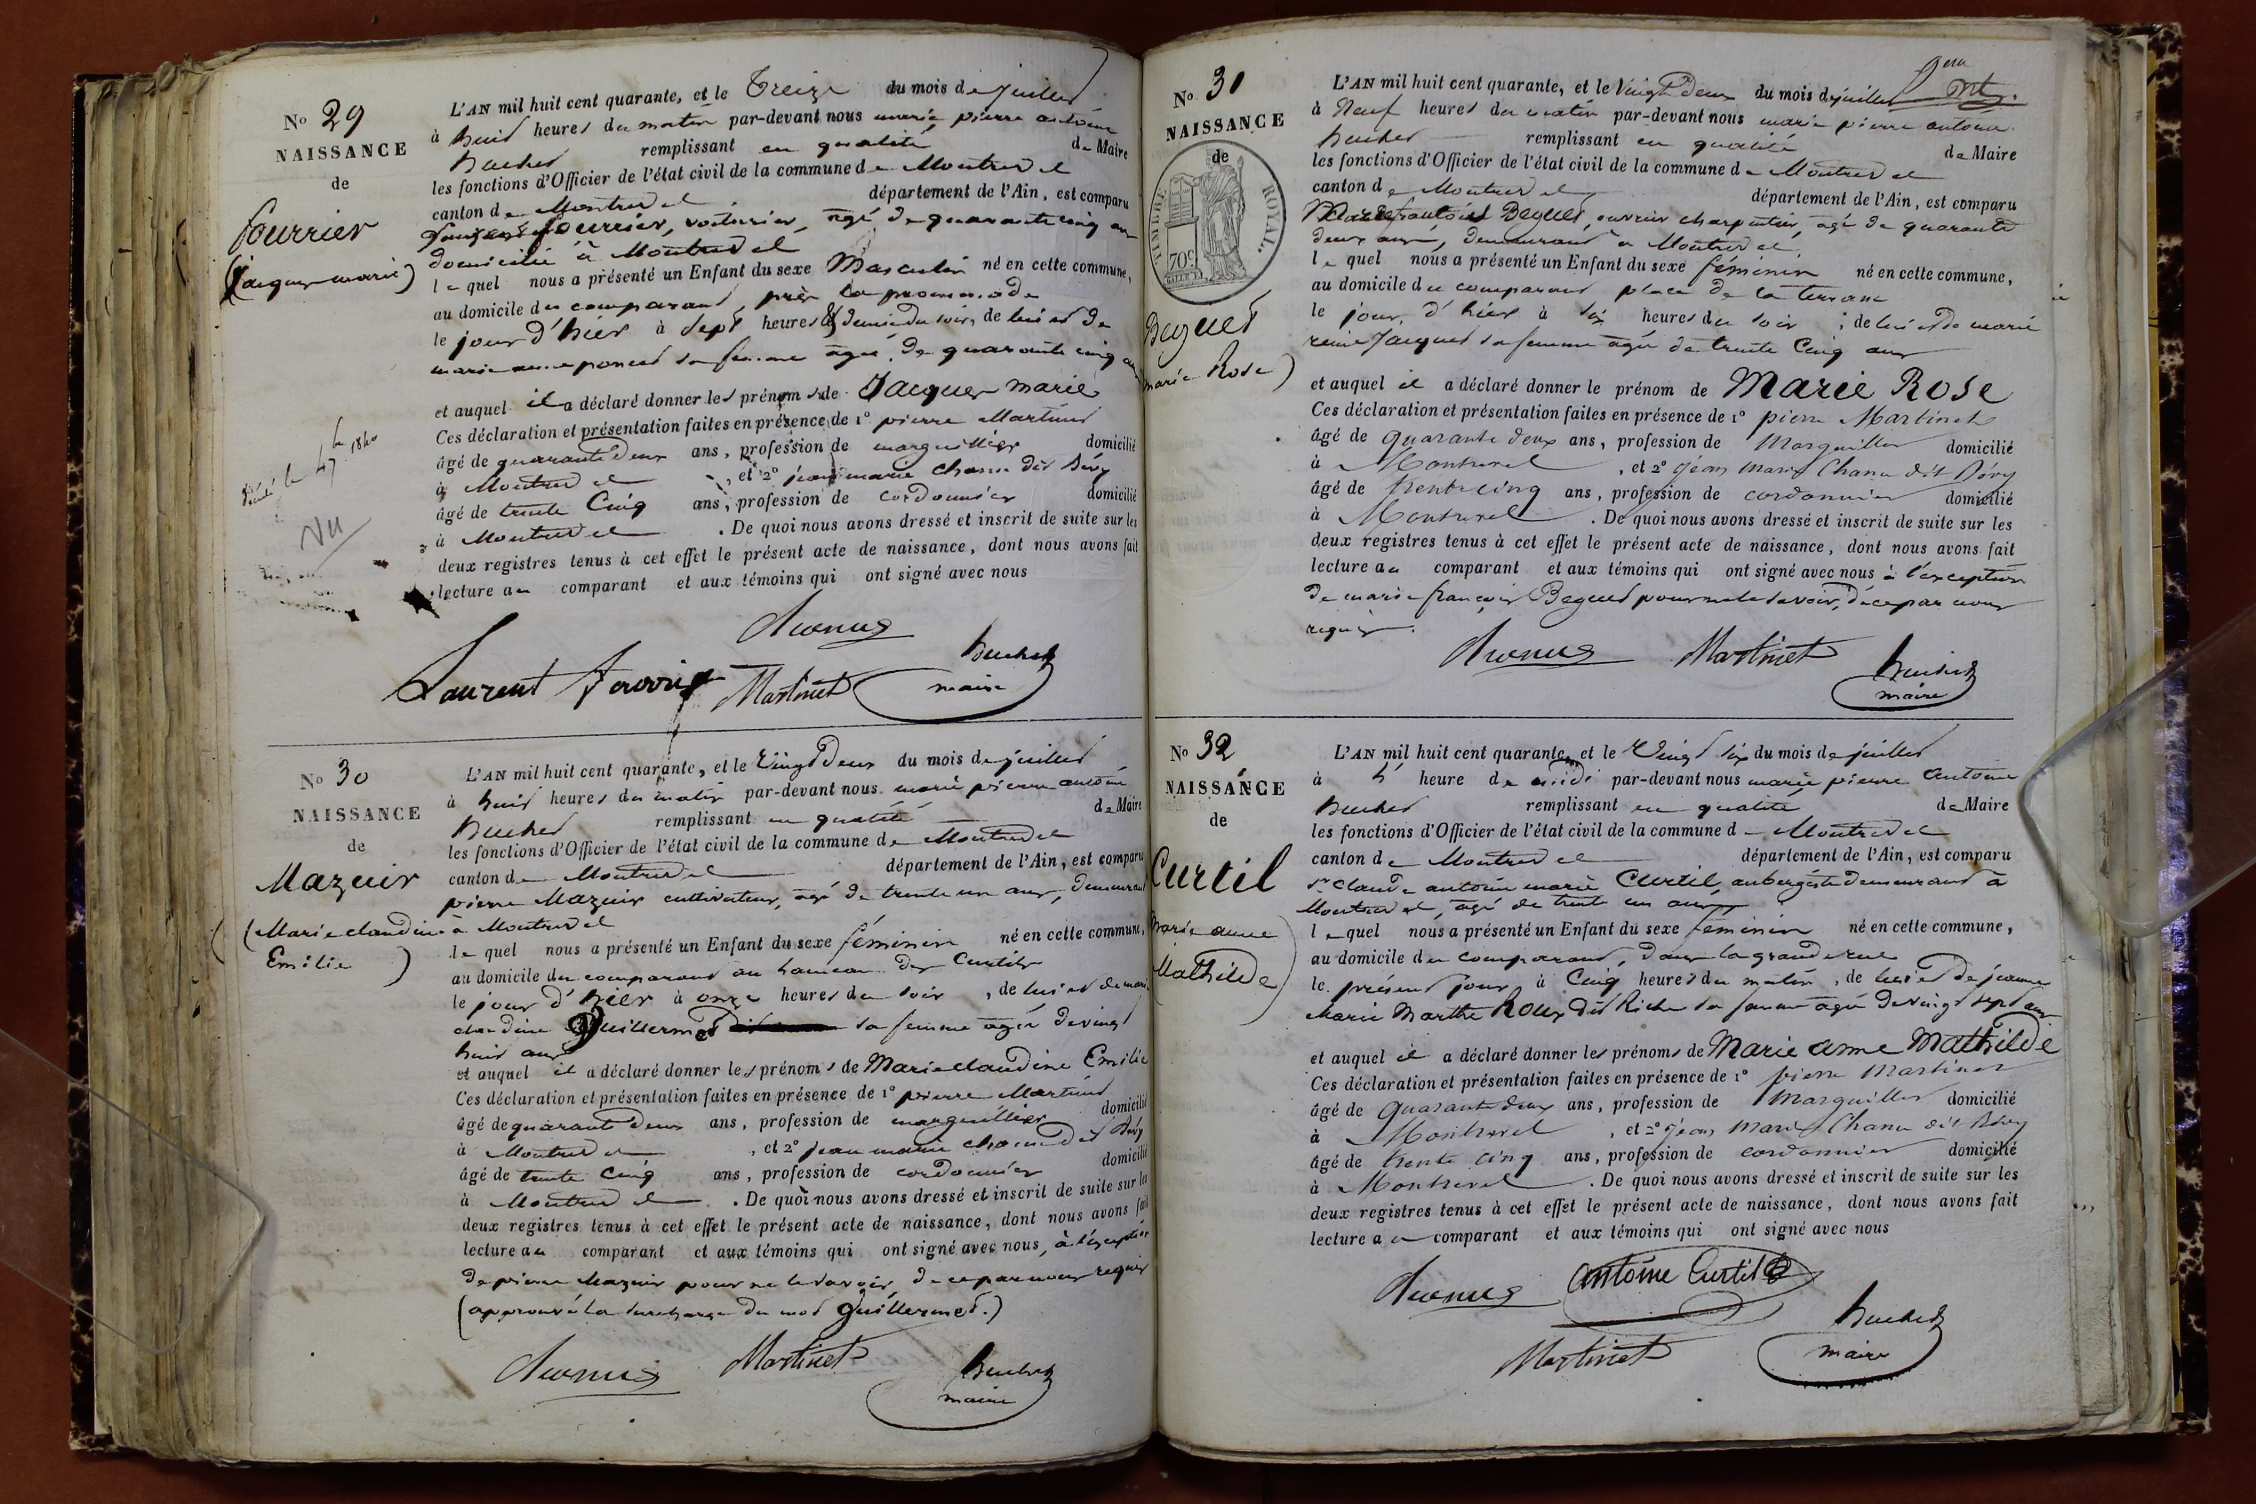 No 29
NAISSANCE
de
fourrier
(jacques marie)
VU
L'AN mil huit cent quarante, et le Treize du mois de juillet
à huit heures du matin par-devant nous marie pierre antoine
Buchet remplissant en qualité de Maire
les fonctions d'Officier de l'état civil de la commune de Montrevel
canton de Montrevel département de l'Ain, est comparu
fourrier, voiturier, âgé de quarante cinq ans
domicilié à Montrevel
lequel nous a présenté un Enfant du sexe Masculin né en cette commune,
au domicile du comparant, près la promenade
le jour d'hier à sept heures & demie du soir, de lui et de
marie anne poncet sa femme âgée de quarante cinq ans
et auquel il a déclaré donner les prénoms de Jacques marie
Ces déclaration et présentation faites en présence de 1º pierre Martinet
âgé de quarante deux ans, profession de marguillier domicilié
à Montrevel, et 2º jean marie Chanu dit Béry
âgé de trente cinq ans, profession de cordonnier domicilié
à Montrevel. De quoi nous avons dressé et inscrit de suite sur les
deux registres tenus à cet effet le présent acte de naissance, dont nous avons fait
lecture au comparant et aux témoins qui ont signé avec nous
Laurent fourrier Martinet Buchet
maire
No 30
NAISSANCE
de
Mazuir
(Marie claudine
Emilie)
L'AN mil huit cent quarante, et le Vingt Deux du mois de juillet
à huit heures du matin par-devant nous marie pierre antoine
Buchet remplissant en qualité de Maire
les fonctions d'Officier de l'état civil de la commune de Montrevel
canton de Montrevel département de l'Ain, est comparu
pierre Mazuir cultivateur, âgé de trente un ans, demeurant
à Montrevel
lequel nous a présenté un Enfant du sexe féminin né en cette commune,
au domicile du comparant au hameau des Curtils
le jour d'hier à onze heures du soir, de lui et de marie
claudine Guillermet sa femme âgée de vingt
huit ans
et auquel il a déclaré donner les prénoms de Marie claudine Emilie
Ces déclaration et présentation faites en présence de 1º pierre Martinet
âgé de quarante deux ans, profession de marguillier domicilié
à Montrevel, et 2º jean marie Chanu dit Béry
âgé de trente cinq ans, profession de cordonnier domicilié
à Montrevel. De quoi nous avons dressé et inscrit de suite sur les
deux registres tenus à cet effet le présent acte de naissance, dont nous avons fait
lecture au comparant et aux témoins qui ont signé avec nous, à l'exception
de pierre Mazuir pour ne le savoir, de ce par nous requis
(approuvé la surcharge du mot Guillermet.)
Martinet Buchet
maire
No 31
NAISSANCE
de
TIMBRE ROYAL
70c
Beguet
marie Rose)
L'AN mil huit cent quarante, et le Vingt Deux du mois de juillet
à Neuf heures du matin par-devant nous marie pierre antoine
Buchet remplissant en qualité de Maire
les fonctions d'Officier de l'état civil de la commune de Montrevel
canton de Montrevel département de l'Ain, est comparu
Beguet, ouvrier charpentier, âgé de quarante
deux ans, demeurant à Montrevel
lequel nous a présenté un Enfant du sexe féminin né en cette commune,
au domicile du comparant place de la terrasse
le jour d'hier à six heures du soir, de lui et de marie
reine Jacquet sa femme âgée de trente Cinq ans
et auquel il a déclaré donner le prénom de Marie Rose
Ces déclaration et présentation faites en présence de 1º pierre Martinet
âgé de quarante deux ans, profession de Marguillier domicilié
à Montrevel, et 2º jean Marie Chanu dit Béry
âgé de trente cinq ans, profession de cordonnier domicilié
à Montrevel. De quoi nous avons dressé et inscrit de suite sur les
deux registres tenus à cet effet le présent acte de naissance, dont nous avons fait
lecture au comparant et aux témoins qui ont signé avec nous à l'exception
de marie françois Beguet pour ne le savoir, de ce par nous
requis.
Martinet Buchet
maire
No 32
NAISSANCE
de
Curtil
marie anne
Mathilde)
L'AN mil huit cent quarante, et le Vingt six du mois de juillet
à heure de midi par-devant nous marie pierre Antoine
Buchet remplissant en qualité de Maire
les fonctions d'Officier de l'état civil de la commune de Montrevel
canton de Montrevel département de l'Ain, est comparu
sr Claude antoine marie Curtil, aubergiste demeurant à
Montrevel, âgé de trente un ans
lequel nous a présenté un Enfant du sexe féminin né en cette commune,
au domicile du comparant, dans la grande rue
le présent jour à Cinq heures du matin, de lui et de jeanne
Marie Marthe Roux dit Riche sa femme âgée de vingt sept ans
et auquel il a déclaré donner les prénoms de Marie anne Mathilde
Ces déclaration et présentation faites en présence de 1º pierre Martinet
âgé de quarante deux ans, profession de Marguillier domicilié
à Montrevel, et 2º jean Marie Chanu dit Béry
âgé de trente cinq ans, profession de cordonnier domicilié
à Montrevel. De quoi nous avons dressé et inscrit de suite sur les
deux registres tenus à cet effet le présent acte de naissance, dont nous avons fait
lecture au comparant et aux témoins qui ont signé avec nous
Antoine Curtil
Martinet Buchet
maire